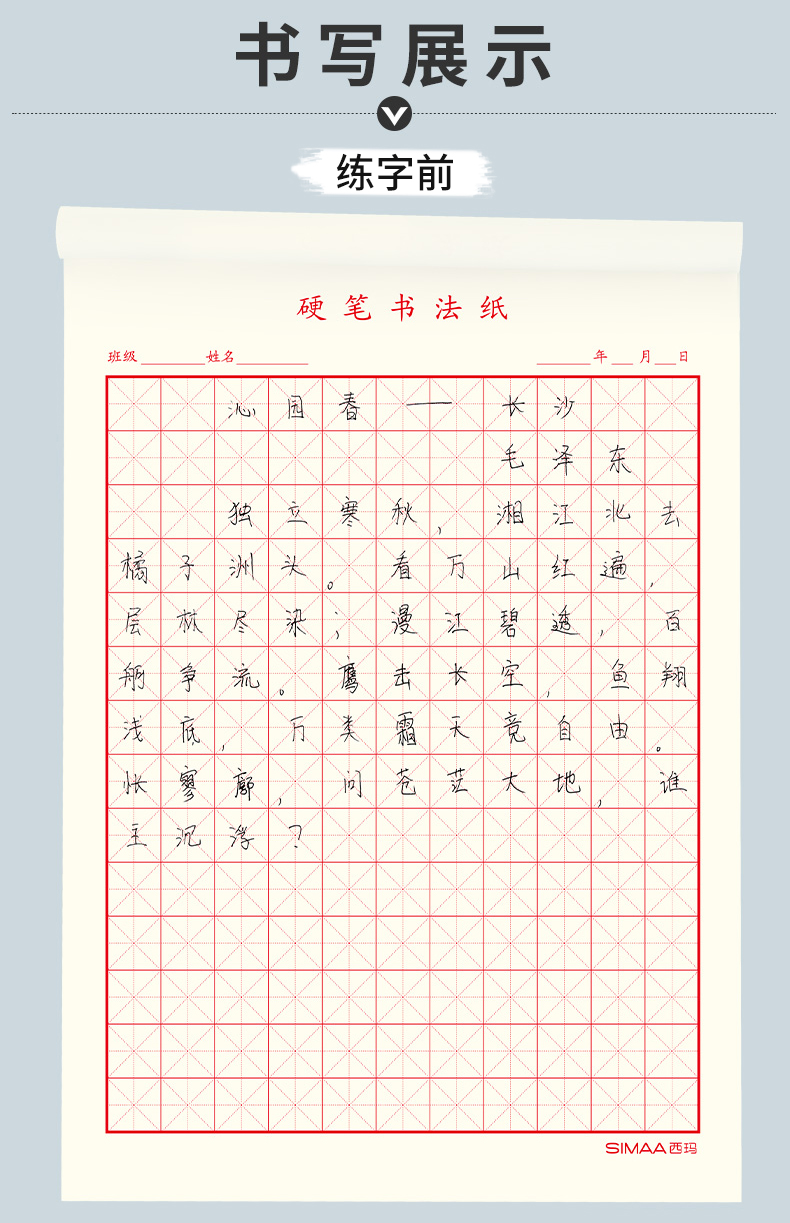 书写展示
练字前
硬笔书法纸
班级 姓名 年 月 日
沁园春——长沙
毛泽东
独立寒秋，湘江北去
橘子洲头。看万山红遍，
层林尽染；漫江碧透，百
舸争流。鹰击长空，鱼翔
浅底，万类霜天竞自由。
怅寥廓，问苍茫大地，谁
主沉浮？
SIMAA西玛